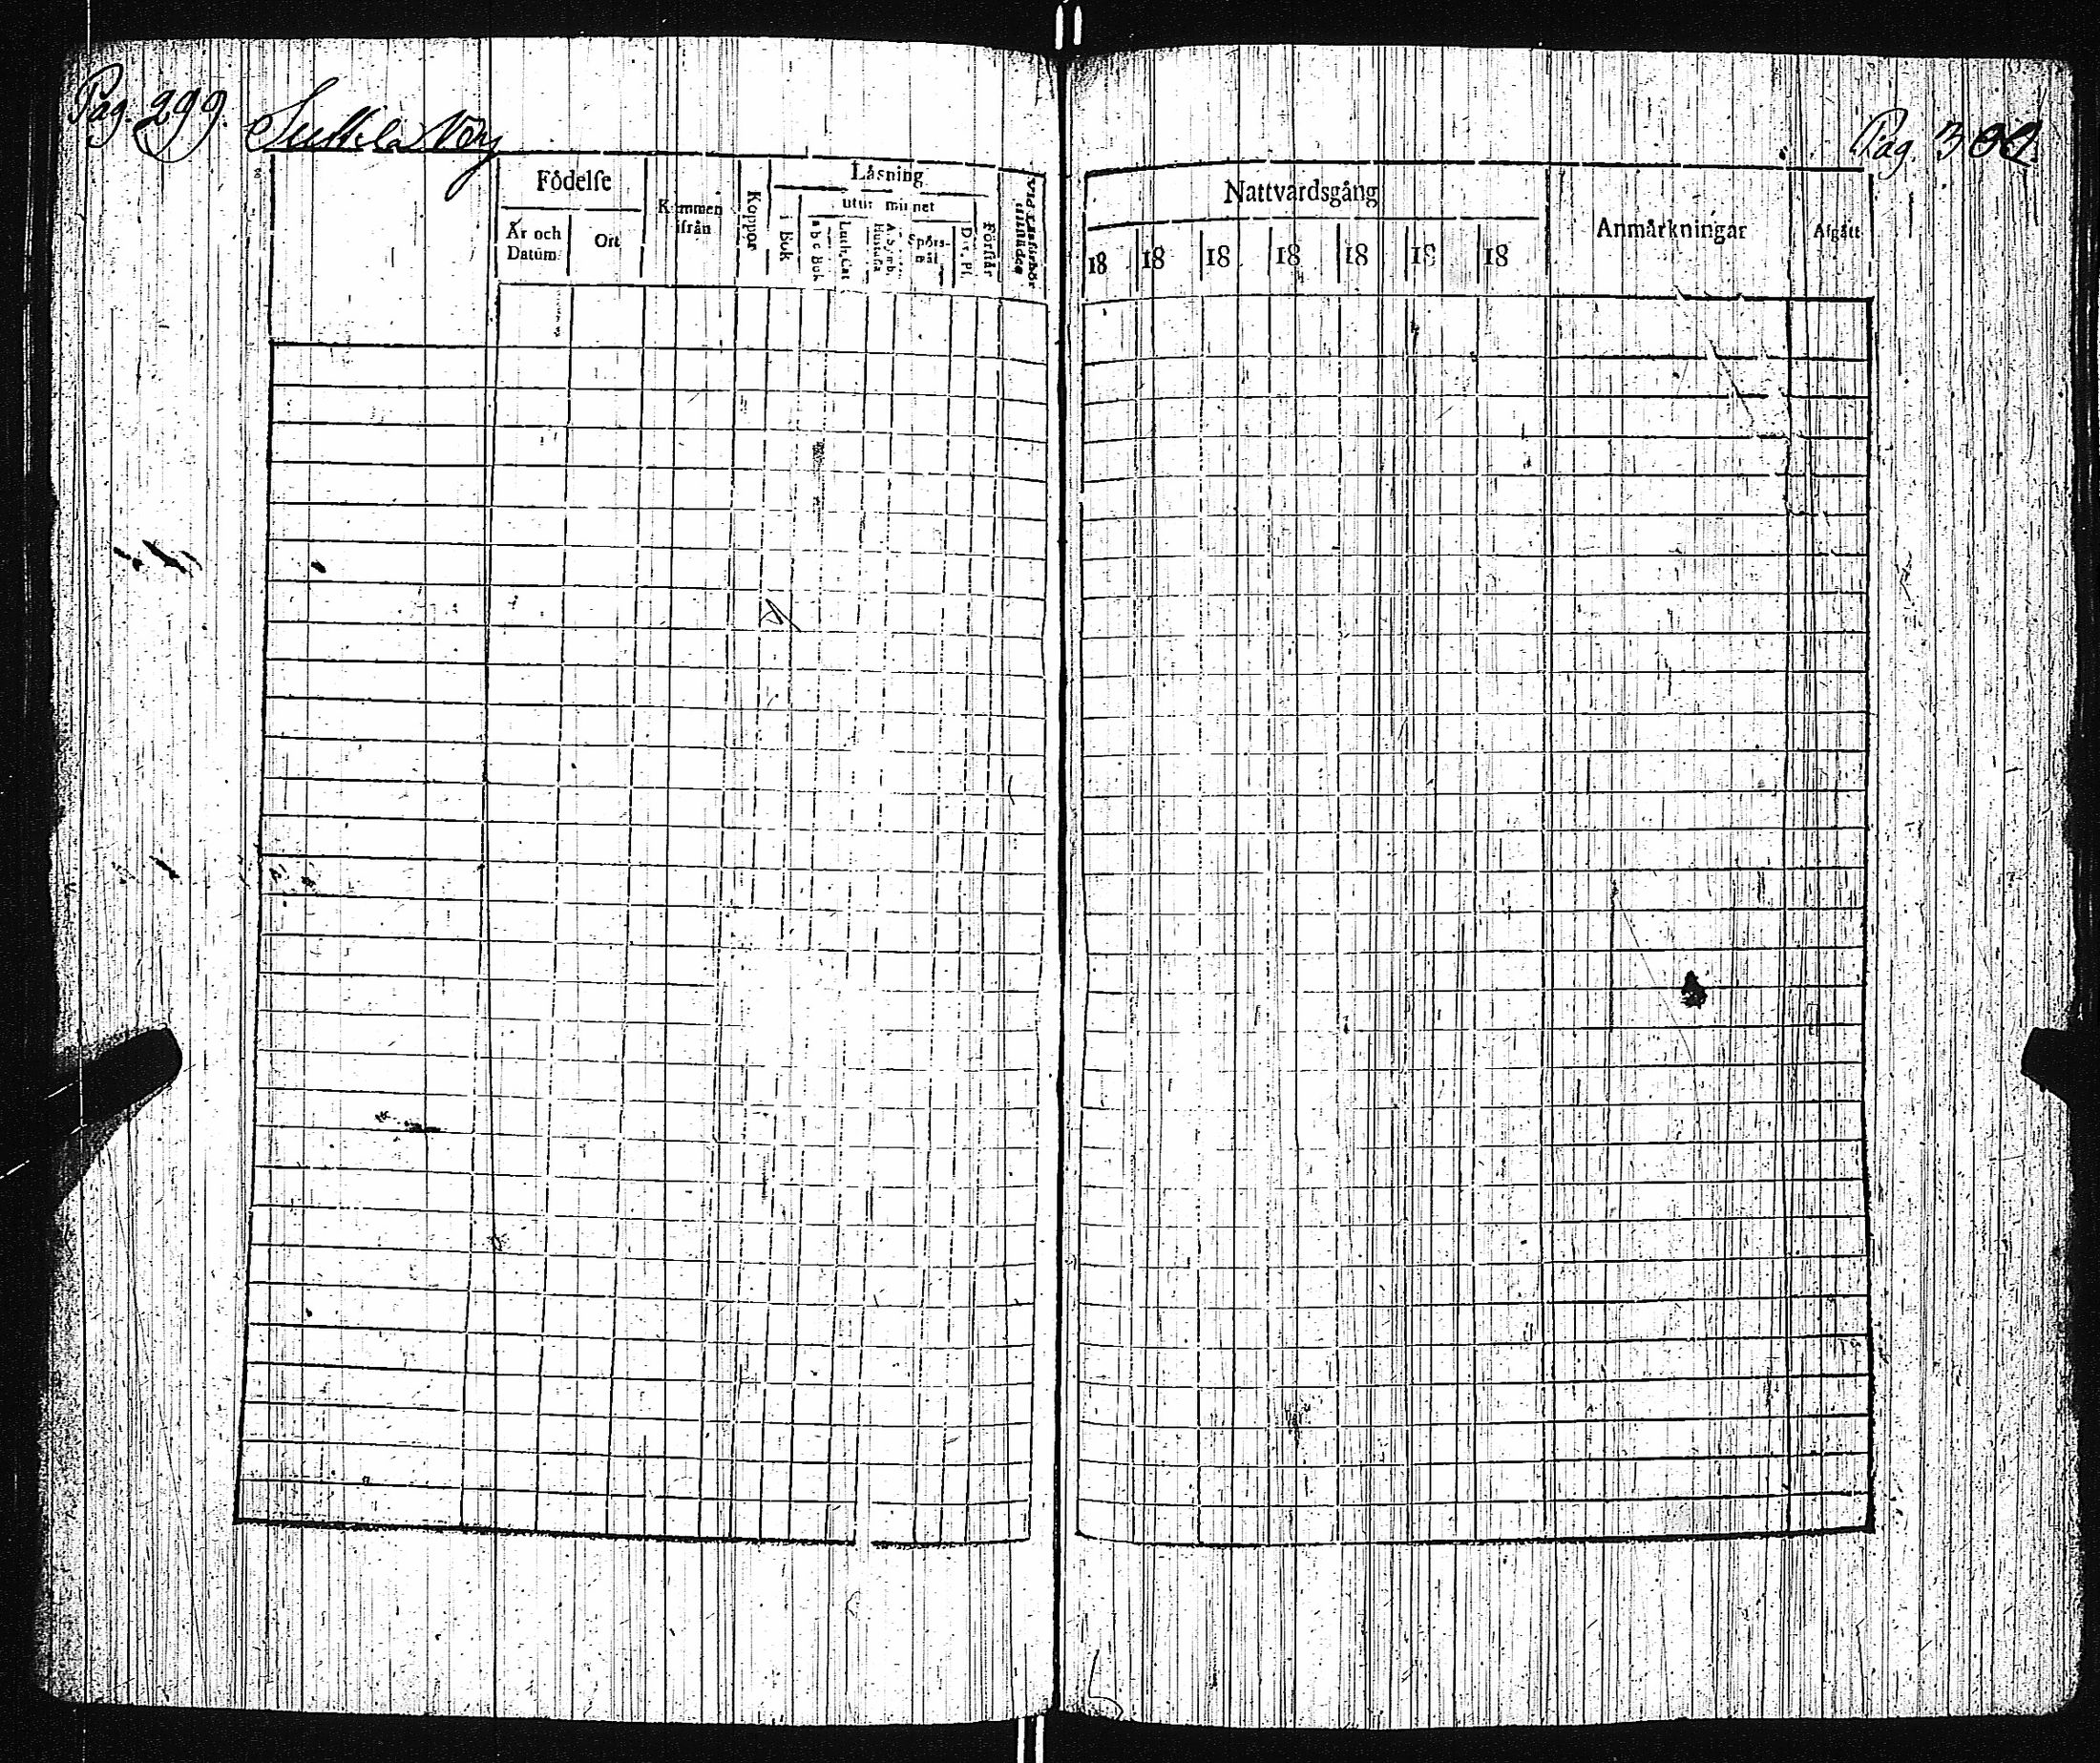 Pag. 299.
Suttila By
Födelſe
År och Datum
Ort
Kommen ifrån
Koppor
Läsning
i Bok
utur minnet
a b c Bok
Luth. Cat
Huſtafla
Spörs-mål
Förſtår
Vid Läsförhör tillſtädes
Pag. 300.
Nattvardsgång
18 18 18 18 18 18 18
Anmärkningar
Afgått